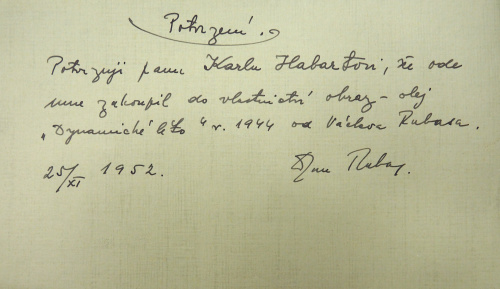 Potvrzení.
Potvrzuji panu Karlu Habartovi, že ode
mne zakoupil do vlastnictví obraz - olej
„Dynamické léto“ r. 1944 od Václava Rabasa.
25/XI 1952. Rabas.